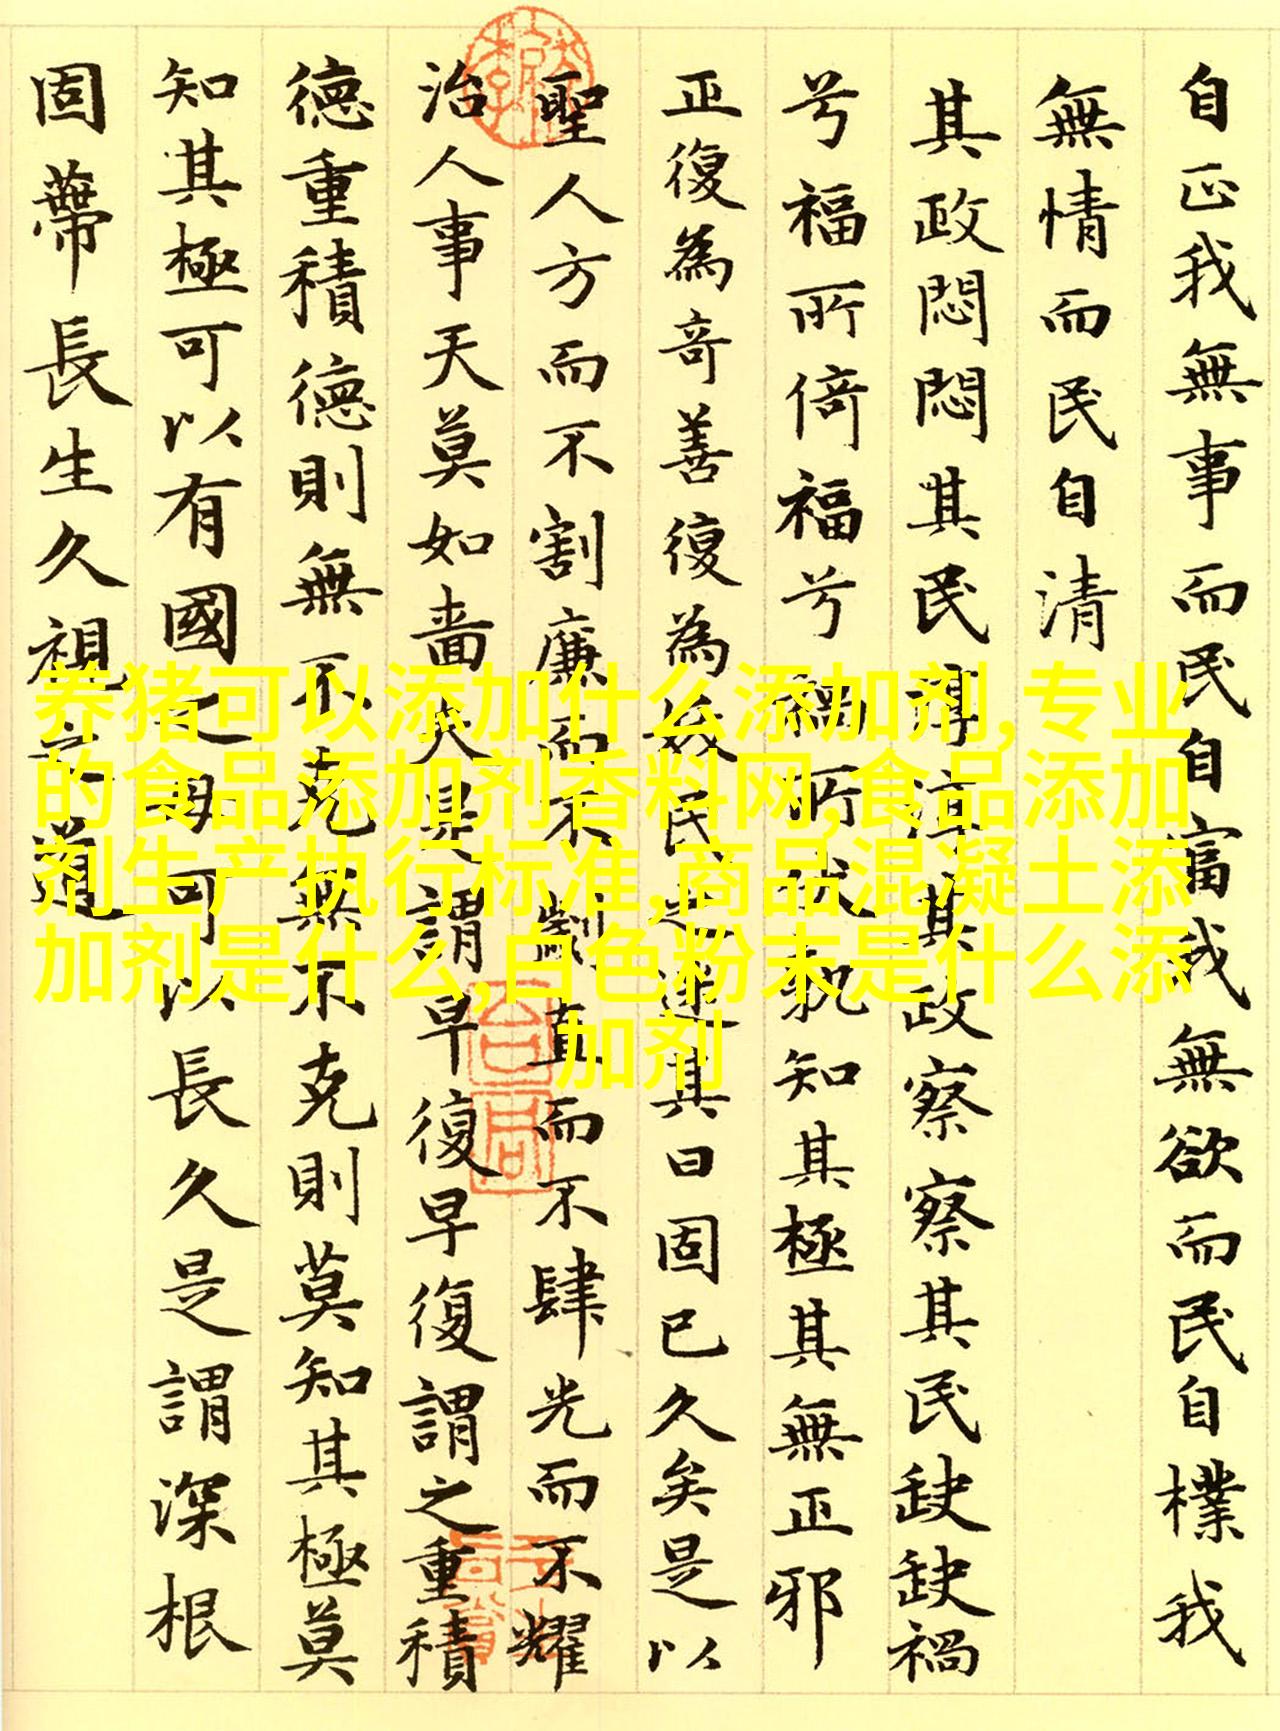 自正我無事而民自富我無欲而民自樸我
無情而民自清
其政悶悶其民淳淳其政察察其民缺缺禍
兮福所倚福兮禍所伏孰知其極其無正邪
正復為奇善復為妖民之迷其日固已久矣是以
聖人方而不割廉而不劌直而不肆光而不耀
治人事天莫如嗇夫是謂早復早復謂之重積
德重積德則無不克無不克則莫知其極莫
知其極可以有國之母可以長久是謂深根
固蔕長生久視之道
养猪可以添加什么添加剂,专业
的食品添加剂香料网,食品添加
剂生产执行标准,商品混凝土添
加剂是什么,白色粉末是什么添
加剂